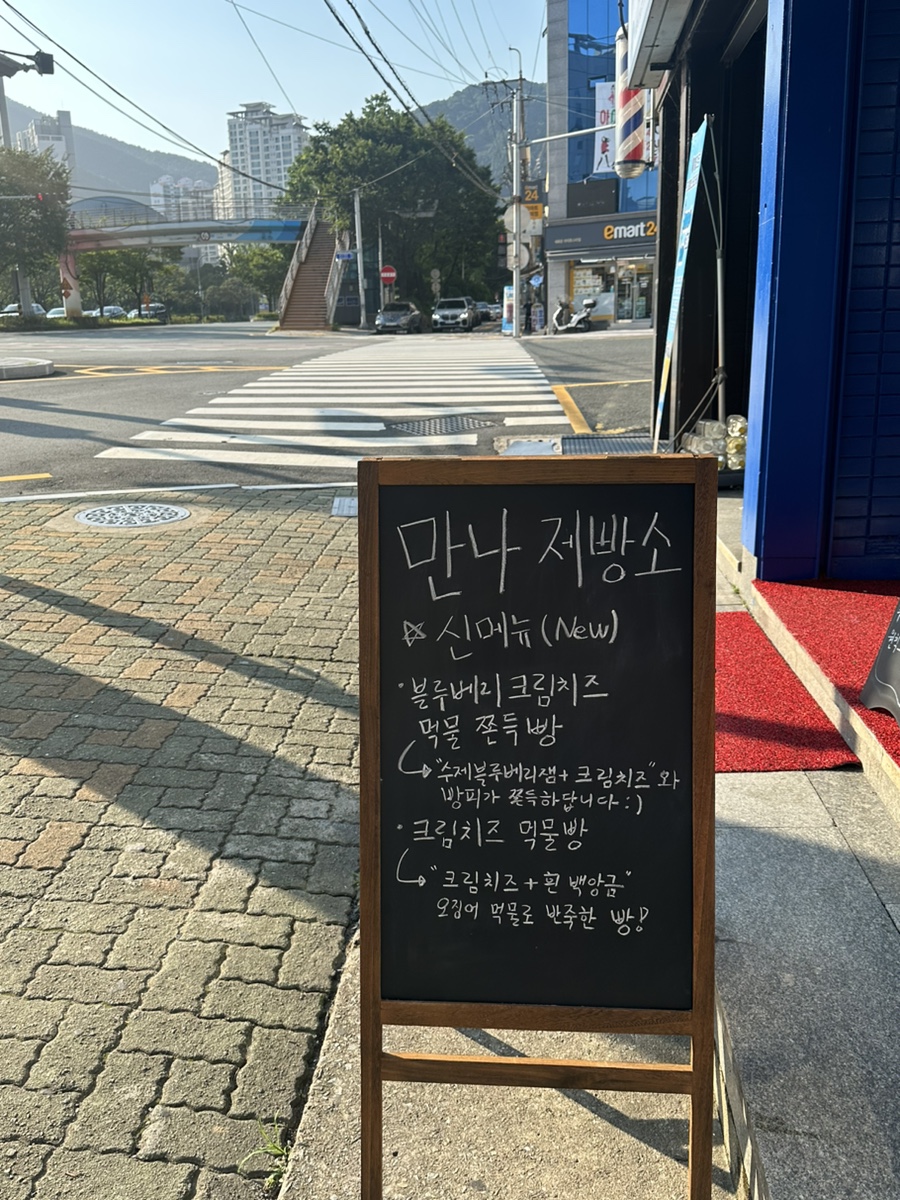 emart24
24
만나 제빵소
☆ 신메뉴(New)
·블루베리크림치즈
먹물 쫀득빵
"수제블루베리잼+크림치즈"와
빵피가 쫄득하답니다:)
·크림치즈 먹물빵
"크림치즈+흰 백앙금"
오징어 먹물로 반죽한 빵!